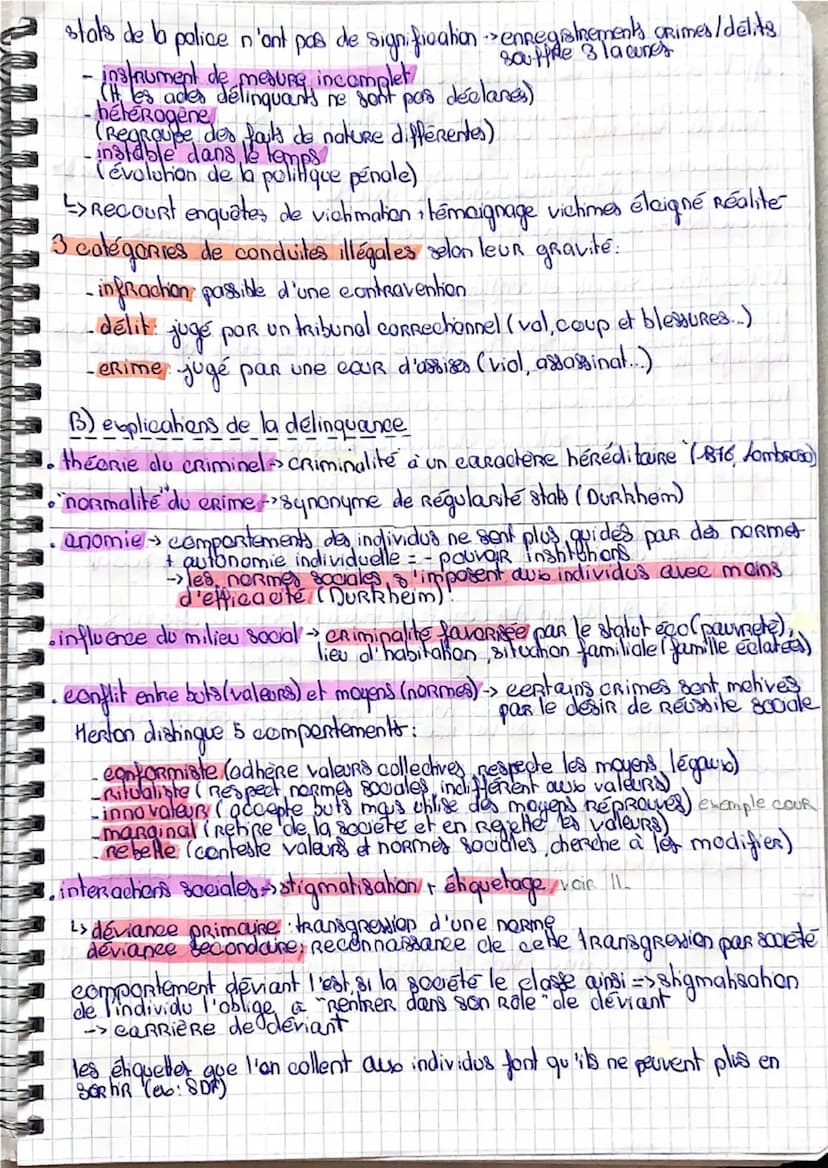 stats de la police n'ont pas de signification -> enregistrements crimes/délits
souffre 3 lacunes
- instrument de mesure incomplet
(tt les actes délinquants ne sont pas déclarés)
- hétérogène
(Regroupe des faits de nature différentes)
- instable dans le temps
(évolution de la politique pénale)
↳ Recourt enquêtes de victimation + témoignage victimes éloigné Réalité
3 catégories de conduites illégales selon leur gravité:
- infraction: passible d'une contravention
- délit: jugé par un tribunal correctionnel (vol, coup et blessures...)
- crime: jugé par une cour d'assises (viol, assassinat...)
B) explications de la délinquance
. théorie du criminel -> criminalité à un caractère héréditaire (1876, Lombroso)
. "normalité" du crime -> synonyme de Régularité stats (Durkheim)
. anomie -> comportements des individus ne sont plus guidés par des normes
+ autonomie individuelle = - pouvoir institutions
-> les normes sociales s'imposent aux individus avec moins
d'efficacité (Durkheim)
. influence du milieu social -> criminalité favorisée par le statut éco (pauvreté),
lieu d'habitation, situation familiale (famille éclatées)
. conflit entre buts (valeurs) et moyens (normes) -> certains crimes sont motivés
par le désir de Réussite sociale
Merton distingue 5 comportements:
- conformiste (adhère valeurs collectives, respecte les moyens légaux)
- Ritualiste (Respect normes sociales, indifférent aux valeurs)
- innovateur (accepte buts mais utilise des moyens réprouvés) exemple cour
- marginal (retire de la société et en Rejette les valeurs)
- rebelle (conteste valeurs et normes sociales, cherche à les modifier)
. interactions sociales -> stigmatisation + étiquetage voir II.
↳ déviance primaire: transgression d'une norme
déviance secondaire: Reconnaissance de cette transgression par société
comportement déviant l'est si la société le classe ainsi => stigmatisation
de l'individu l'oblige à "rentrer dans son Rôle" de déviant
-> carrière de déviant
les étiquettes que l'on collent aux individus font qu'ils ne peuvent plus en
sortir (ex: SDF)